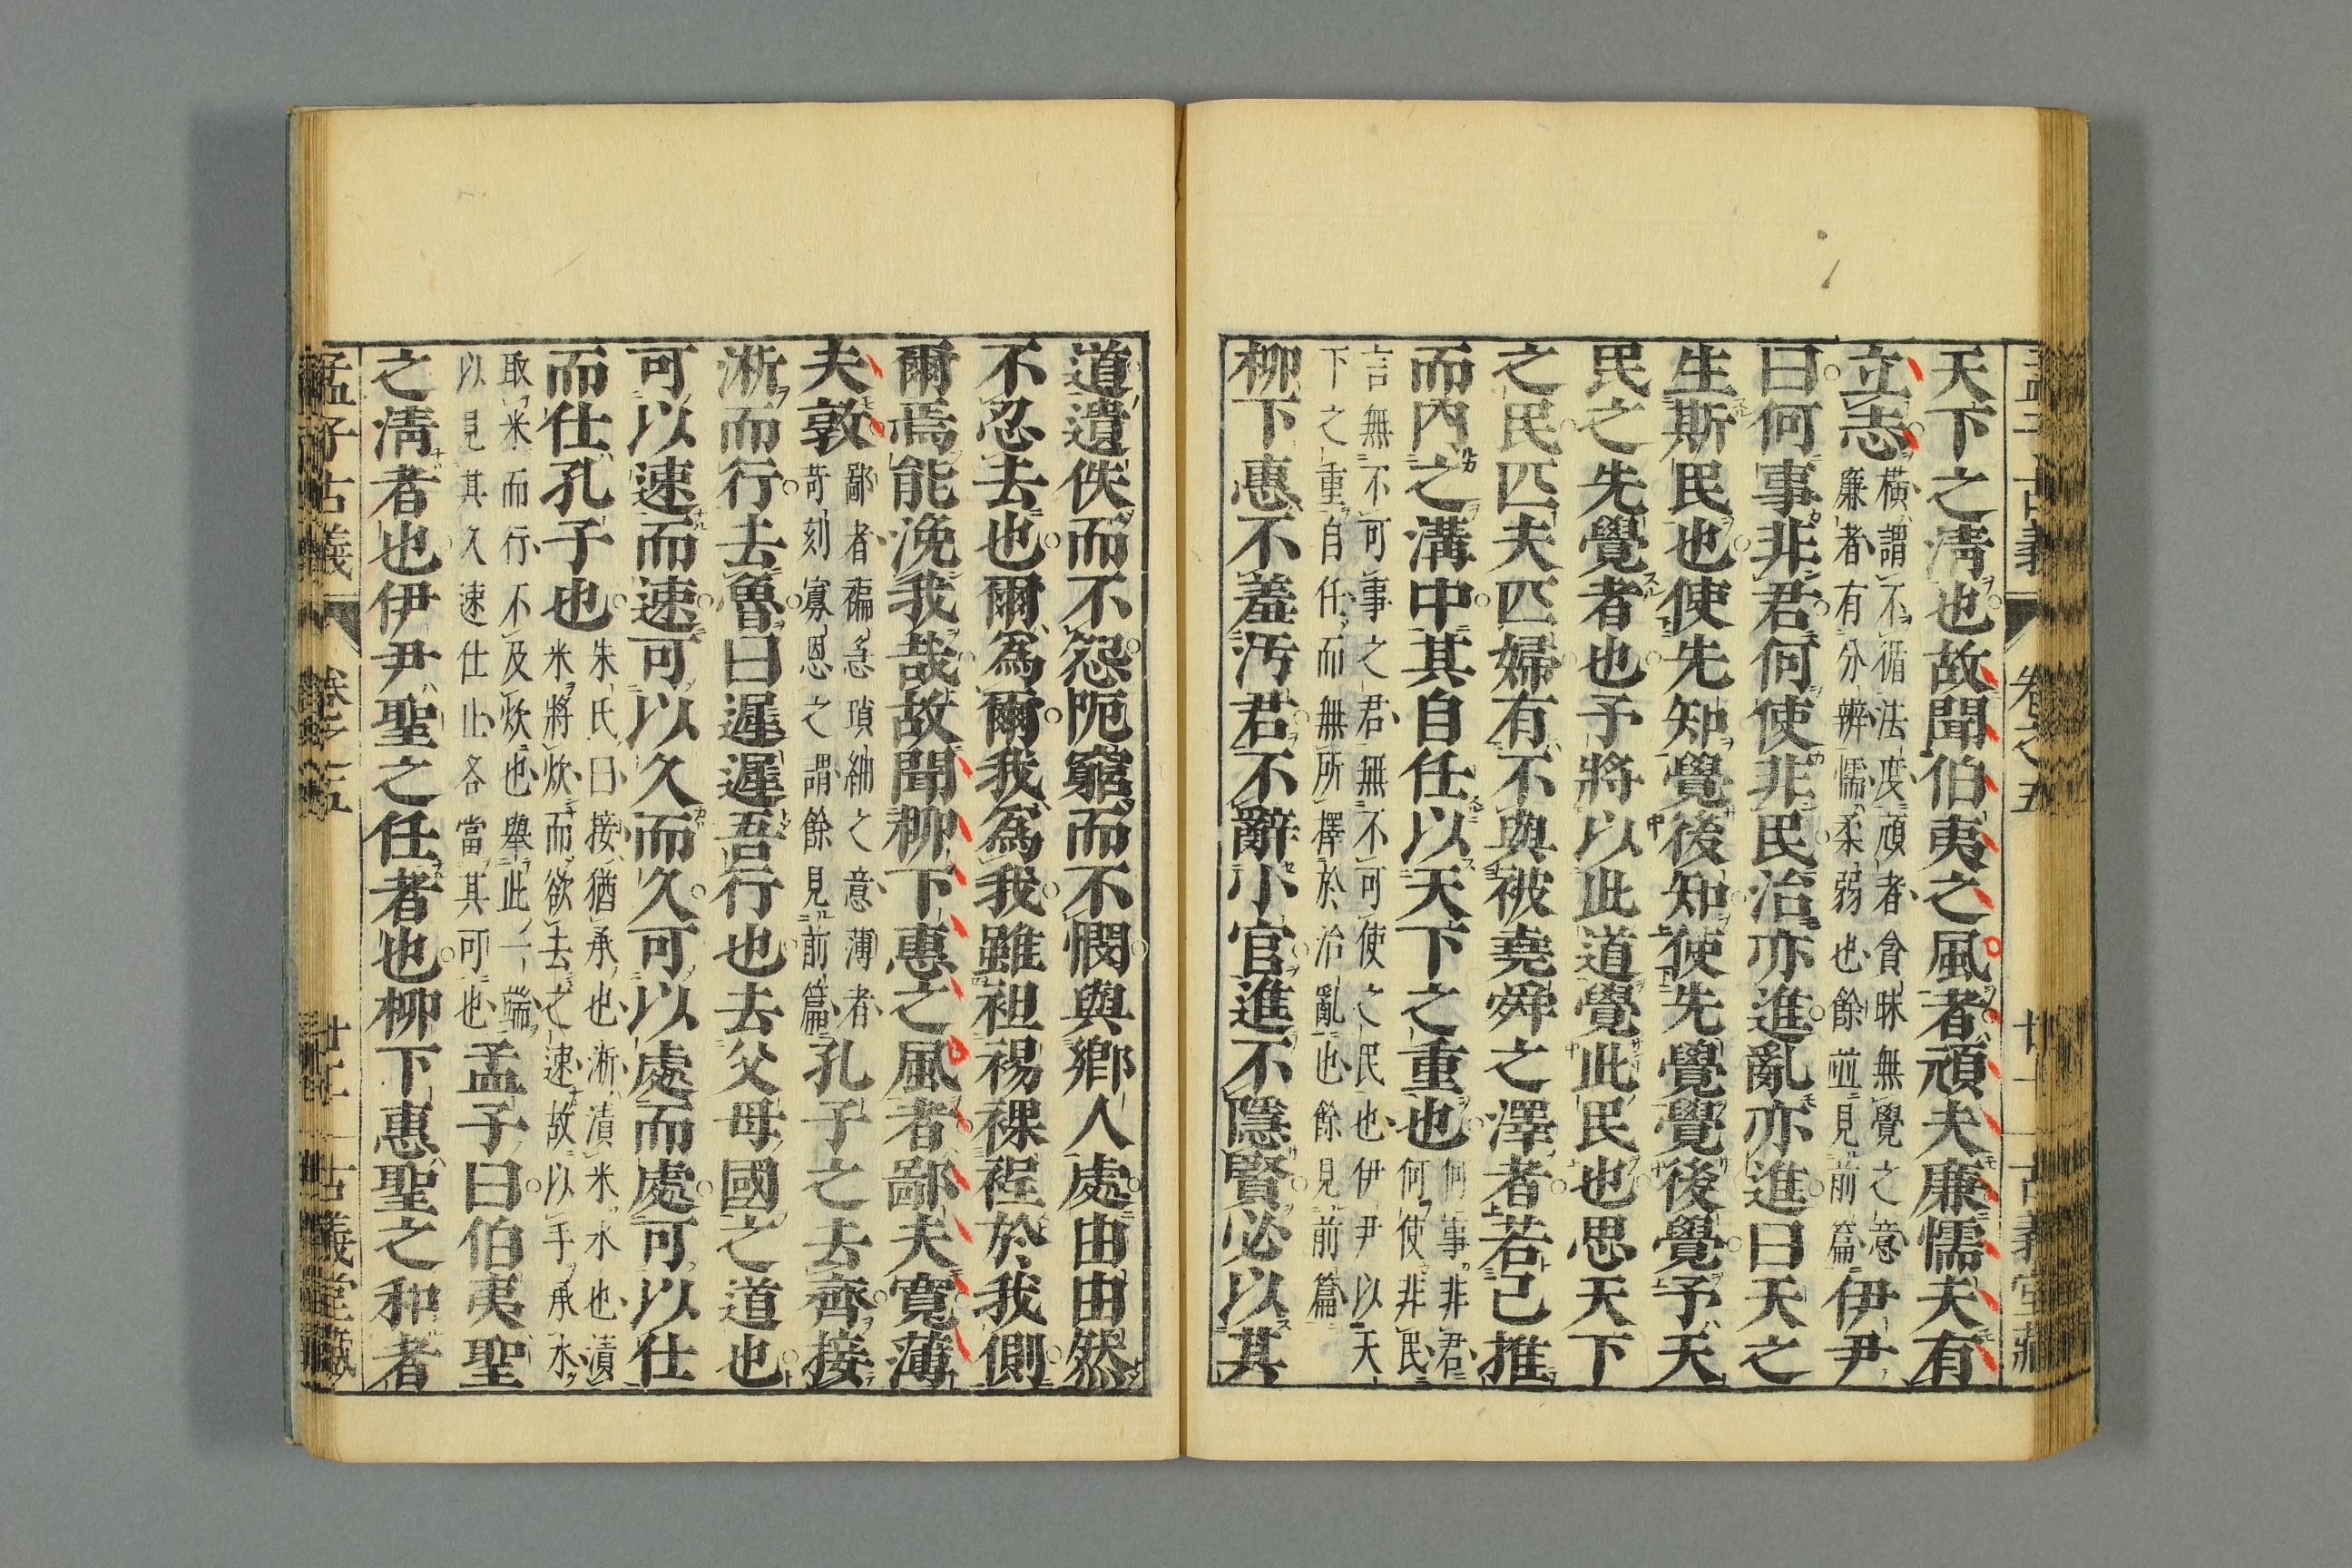 天下之淸也故聞伯夷之風者頑夫廉懦夫有
立志橫謂不循法度頑者貪昧無覺之意
廉者有分辨懦柔弱也餘並見前篇伊尹
曰何事非君何使非民治亦進亂亦進曰天之
生斯民也使先知覺後知使先覺覺後覺予天
民之先覺者也予將以此道覺此民也思天下
之民匹夫匹婦有不與被堯舜之澤者若己推
而內之溝中其自任以天下之重也何事非君
何使非民
言無不可事之君無不可使之民也伊尹以天
下之重自任而無所擇於治亂也餘見前篇
柳下惠不羞汚君不辭小官進不隱賢必以其
道遺佚而不怨阨窮而不憫與鄕人處由由然
不忍去也爾爲爾我爲我雖袒裼裸裎於我側
爾焉能浼我哉故聞柳下惠之風者鄙夫寬薄
夫敦鄙者褊急瑣紬之意薄者
苛刻寡恩之謂餘見前篇孔子之去齊接
淅而行去魯曰遲遲吾行也去父母國之道也
可以速而速可以久而久可以處而處可以仕
而仕孔子也朱氏曰接猶承也淅漬米水也漬
米將炊而欲去之速故以手承水
取米而行不及炊也舉此一端
以見其久速仕止各當其可也孟子曰伯夷聖
之淸者也伊尹聖之任者也柳下惠聖之和者
孟子古義 卷之五 古義堂藏